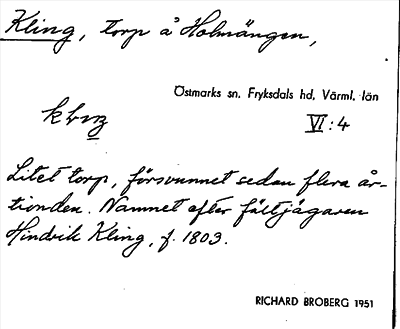 Kling, torp å Holmängen,
Östmarks sn, Fryksdals hd, Värml. län
VI:4
Litet torp, försvunnet sedan flera år-
tionden. Namnet efter fältjägaren
Hindrik Kling, f. 1803.
RICHARD BROBERG 1951